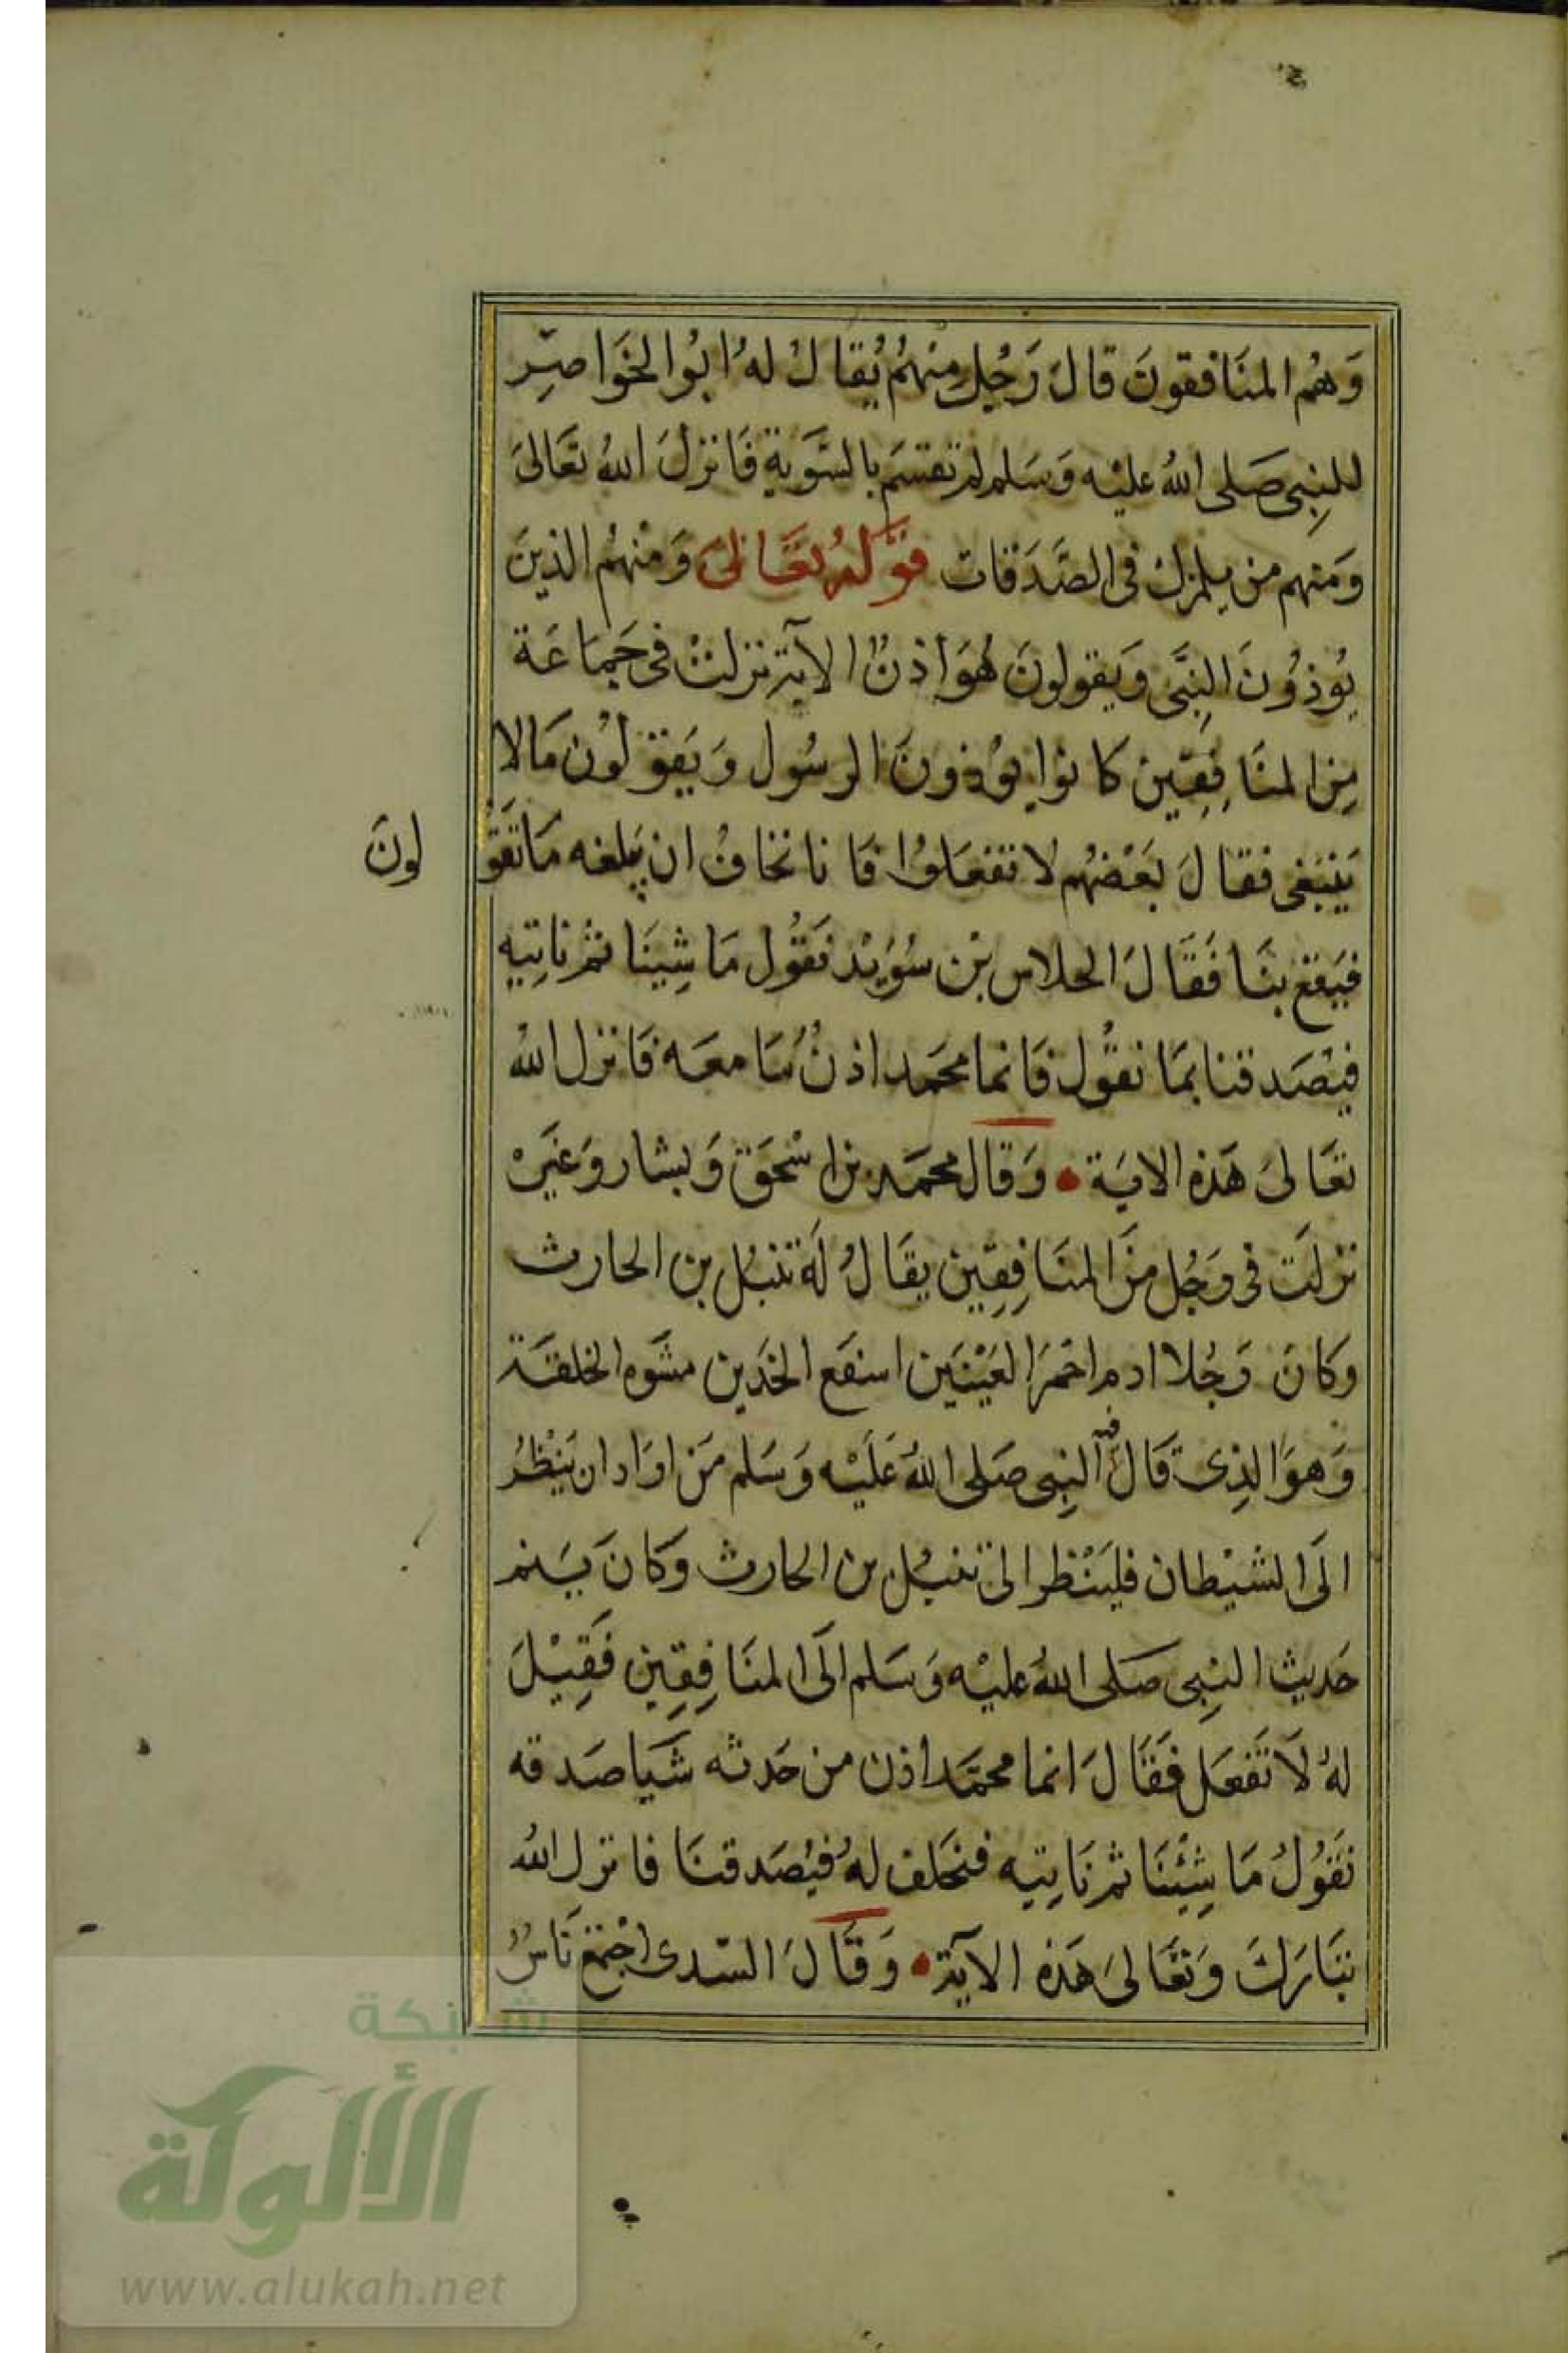 وَهُم المنَافقونَ قالَ رَجُل مِنهُم يُقالُ لهُ ابُوا الخَوَاصِر
للنبِي صَلى اللهُ عليْه وَسَلم لم تقسَم بالسَّوَية فَانزلَ اللهُ تعَالىَ
وَمنهم من يلمزك في الصَّدَقات قوْلهُ تعَالىَ وَمنْهُم الذينَ
يُوذُونَ النبِيَّ وَيقولونَ هُوَ اذنٌ الآية نزلتْ في جَمَاعَة
مِن المنَافِقِين كانوا يوُذونَ الرسُول وَيَقولُون مَالا
يَنبَغي فقالَ بَعْضهُم لا تفعَلوُا فَانا نخافُ ان يَبلغه مَا تَقوُ لونَ
فيَقع بنَا فَقالَ الجلاس بْن سُوَيْد نَقُول مَا شِينَا ثمْ ناتِيه
فيُصَدقنا بمَا نقُول فَانما محَمد اذنٌ سَامعَه فَانزل اللهُ
تعَالىَ هَذه الايَة وَقال محمَد بن اسْحَق وَبشار وَغيَرْ
نزلَت في رَجُل مِنَ المنَافِقِين يقَالُ لَهُ نبْتل بن الحارث
وَكانَ رَجُلا ادم احْمَر العَيْنَين اسفَع الخَدين مشَوه الخلقَة
وَهوَ الذِي قالَ فيه النبِي صَلى اللهُ عَلَيْه وَسَلم مَن ارَاد ان يَنْظُر
الَى الشيْطان فليَنْظر الىَ نبتل بن الحارث وَكانَ يَنم
حَديث النبِي صَلى اللهُ عليْه وَسَلم الَى المنَافِقِين فَقِيْلَ
لهُ لَا تَفعَل فَقَالَ انما محمَّد اذن من حَدثه شَيَا صَدقه
نَقوُلُ مَا شِيْنَا ثم نَاتِيه فنحَلف لهُ فيُصَدقنَا فانزل اللهُ
تبَارَكَ وَتعَالىَ هَذه الآيَة وَقَالَ السّدى اجْتمَع نَاسُ
شبكة
الألوكة
www.alukah.net